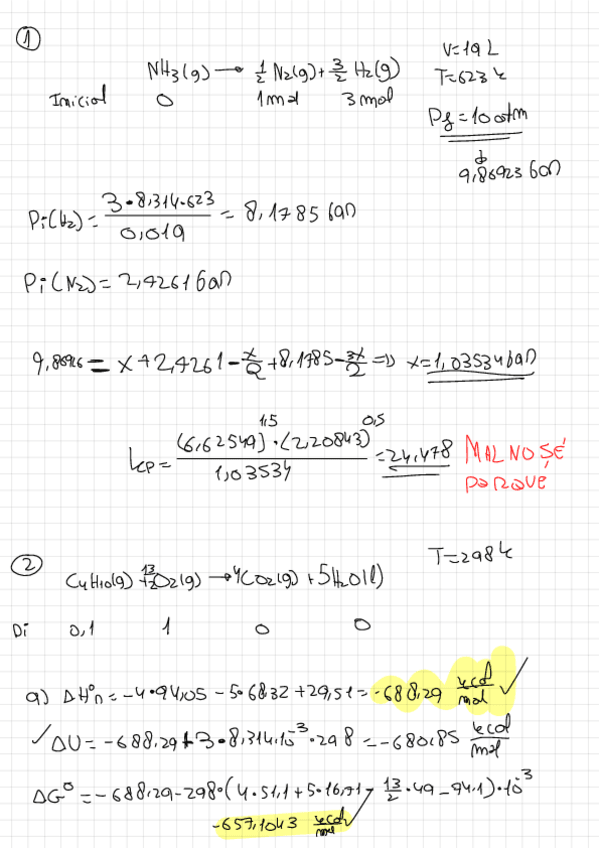 ①
NH3(g) → 1/2 N2(g) + 3/2 H2(g)
V=19L
T=623k
Inicial 0 1mol 3mol
Pf = 10atm
9,86923 bar
Pi(H2) = 3·8,314·623 / 0,019 = 8,1785 bar
Pi(N2) = 2,7261 bar
9,86926 = x + 2,7261 - x/2 + 8,1785 - 3x/2 => x = 1,03534 bar
kp = (6,62549)^1,5 · (2,20843)^0,5 / 1,03534 = 24,478 MAL NO SÉ PORQUE
②
T=298k
C4H10(g) + 13/2 O2(g) → 4CO2(g) + 5H2O(l)
Di 0,1 1 0 0
a) ΔH°n = -4·94,05 - 5·68,32 + 29,51 = -688,29 kcal/mol ✓
✓ ΔU = -688,29 + 3·8,314·10^-3·298 = -680,85 kcal/mol
ΔG° = -688,29 - 298·(4·51,1 + 5·16,71 - 13/2·49 - 74,1)·10^-3
-657,1043 kcal/mol ✓